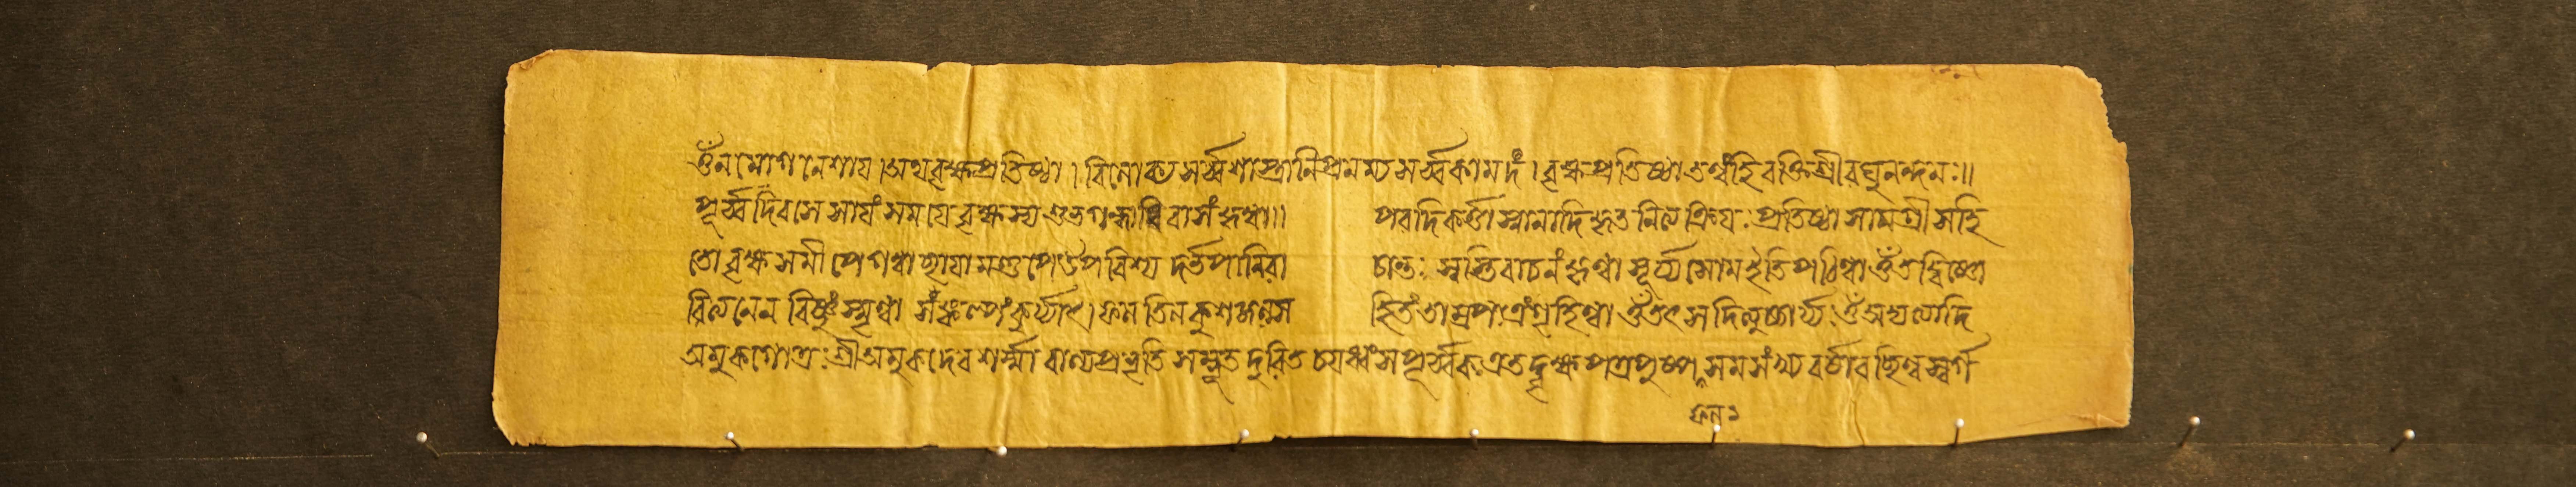 ওঁনমোগনেশায।অথবৃক্ষপ্রতিষ্ঠা। বিলোক্য সর্ব্বশাস্ত্রানি প্রনম্য সর্ব্বকামদং। বৃক্ষপ্রতিষ্ঠাতত্বংহি বক্তি শ্রীরঘুনন্দনঃ॥
পূর্ব্বদিবসে সাযংসমযে বৃক্ষস্য শুভগন্ধাধিবাসংকৃত্বা॥ পরদিকর্ত্তা স্নানাদি কৃতনিত্যক্রিযঃ প্রতিষ্ঠা সামগ্রী সহি
তো বৃক্ষসমীপে গত্বা ছাযামণ্ডপে উপবিশ্য দর্ভপানিরা চান্তঃ স্বস্তিবাচনংকৃত্বা সূর্য্যসোমইতি পঠিত্বা ওঁতদ্বিষ্ণো
রিত্যনেন বিষ্ণুংস্মৃত্বা সংকল্পংকুর্য্যাৎ।ফলতিলকুশজলস হিতং তাম্রপাত্রংগৃহিত্বা ওঁতৎসদিত্যুচ্চার্য্য ওঁঅদ্যত্যাদি
অমুকগোত্রঃ শ্রীঅমুকদেবশর্ম্মা বাল্যপ্রভৃতি সম্ভূত দুরিত চযধ্বংসপূর্ব্বক এতদ্বৃক্ষপত্রপুষ্প সমসংখ্য বর্ষাবছিন্নস্বর্গ
ফল১